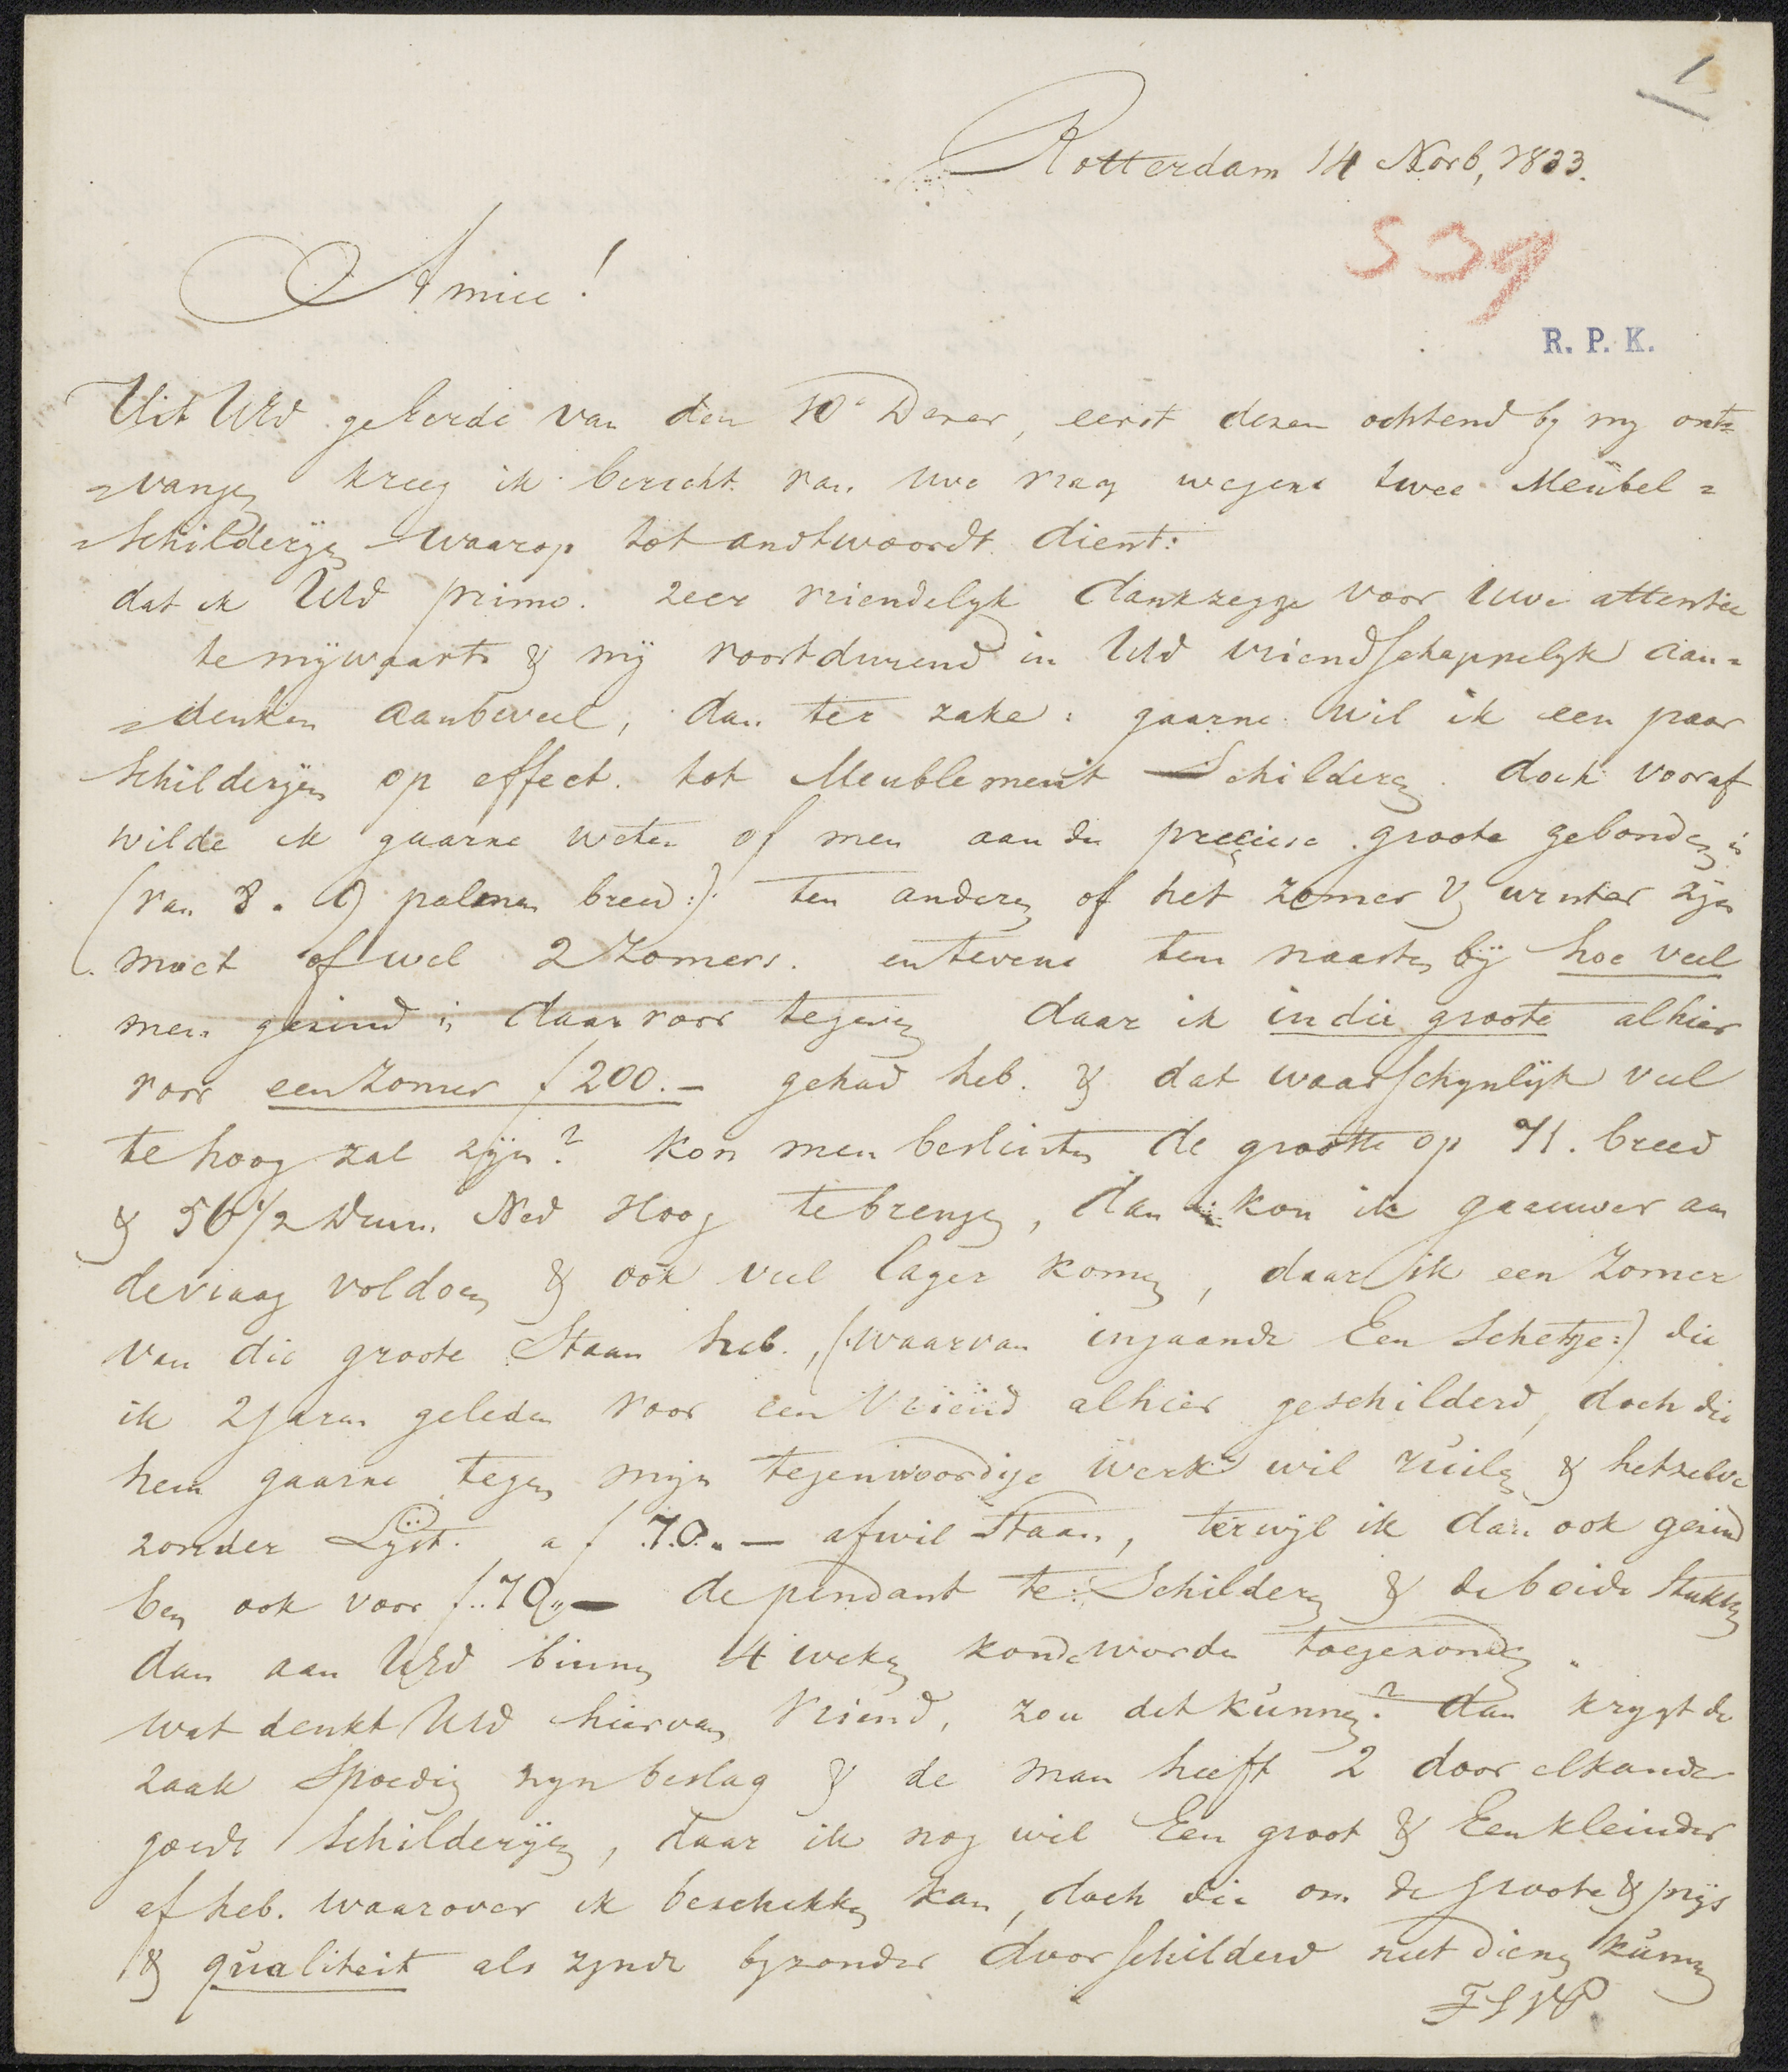 1
Rotterdam 14 Novb, 1833.
539
Amice!
R. P. K.
Uit UEd geEerde van den 10e Dezer, eerst dezen ochtend by my ont=
=vangen kreeg ik berecht van uwe vraag wegens twee Meubel=
=Schilderyen waarop tot andtwoordt dient:
dat ik UEd primo. zeer vriendelyk dankzegge voor Uwe attentie
te mywaarts & mÿ voortdurend in UEd vriendschappelyk aan=
=denken aanbeveel, dan ter zake: gaarne wil ik een paar
Schilderÿen op effect. tot Meublement Schilderen. doch vooraf
wilde ik gaarne weten of men aan de preciese groote gebonden is
(van 8. a 9 palmen breed:) ten anderen of het zomer & winter zÿn
moet of wel 2 Zomers. en tevens ten naasten bÿ hoe veel
men gezind is daar voor tegeven daar ik in die groote alhier
voor een Zomer f 200.— gehad heb. & dat waarschynlÿk veel
te hoog zal zÿn? kon men besluiten de grootte op 71. breed
& 56 1/2 Duim Ned Hoog tebrengen, dan kon ik gaauwer aan
devraag voldoen & ook veel lager komen, daar ik een Zomer
van die groote Staan heb., (waarvan ingaande Een Schetsje:) die
ik 2 jaren geleden voor een Vriend alhier geschilderd, doch die
hem gaarne tegen mÿn tegenwoordige werk wil ruilen & hetzelve
zonder Lyst. a f 70.„— afwil Staan, terwÿl ik dan ook gezind
ben ook voor f..70„— de pendant te Schilderen & de beide Stukken
dan aan UEd binnen 4 weken konde worden toegezonden.
wat denkt UEd hiervan Vriend, zou dat kunnen? dan krygt de
zaak Spoedig zyn beslag & de man heeft 2 door elkander
goede Schilderÿen, daar ik nog wel Een groot & Een kleinder
af heb. waarover ik beschikken kan, doch die om de groote & prÿs
& qualiteit als zynde byzonder doorschilderd niet dienen kunnen